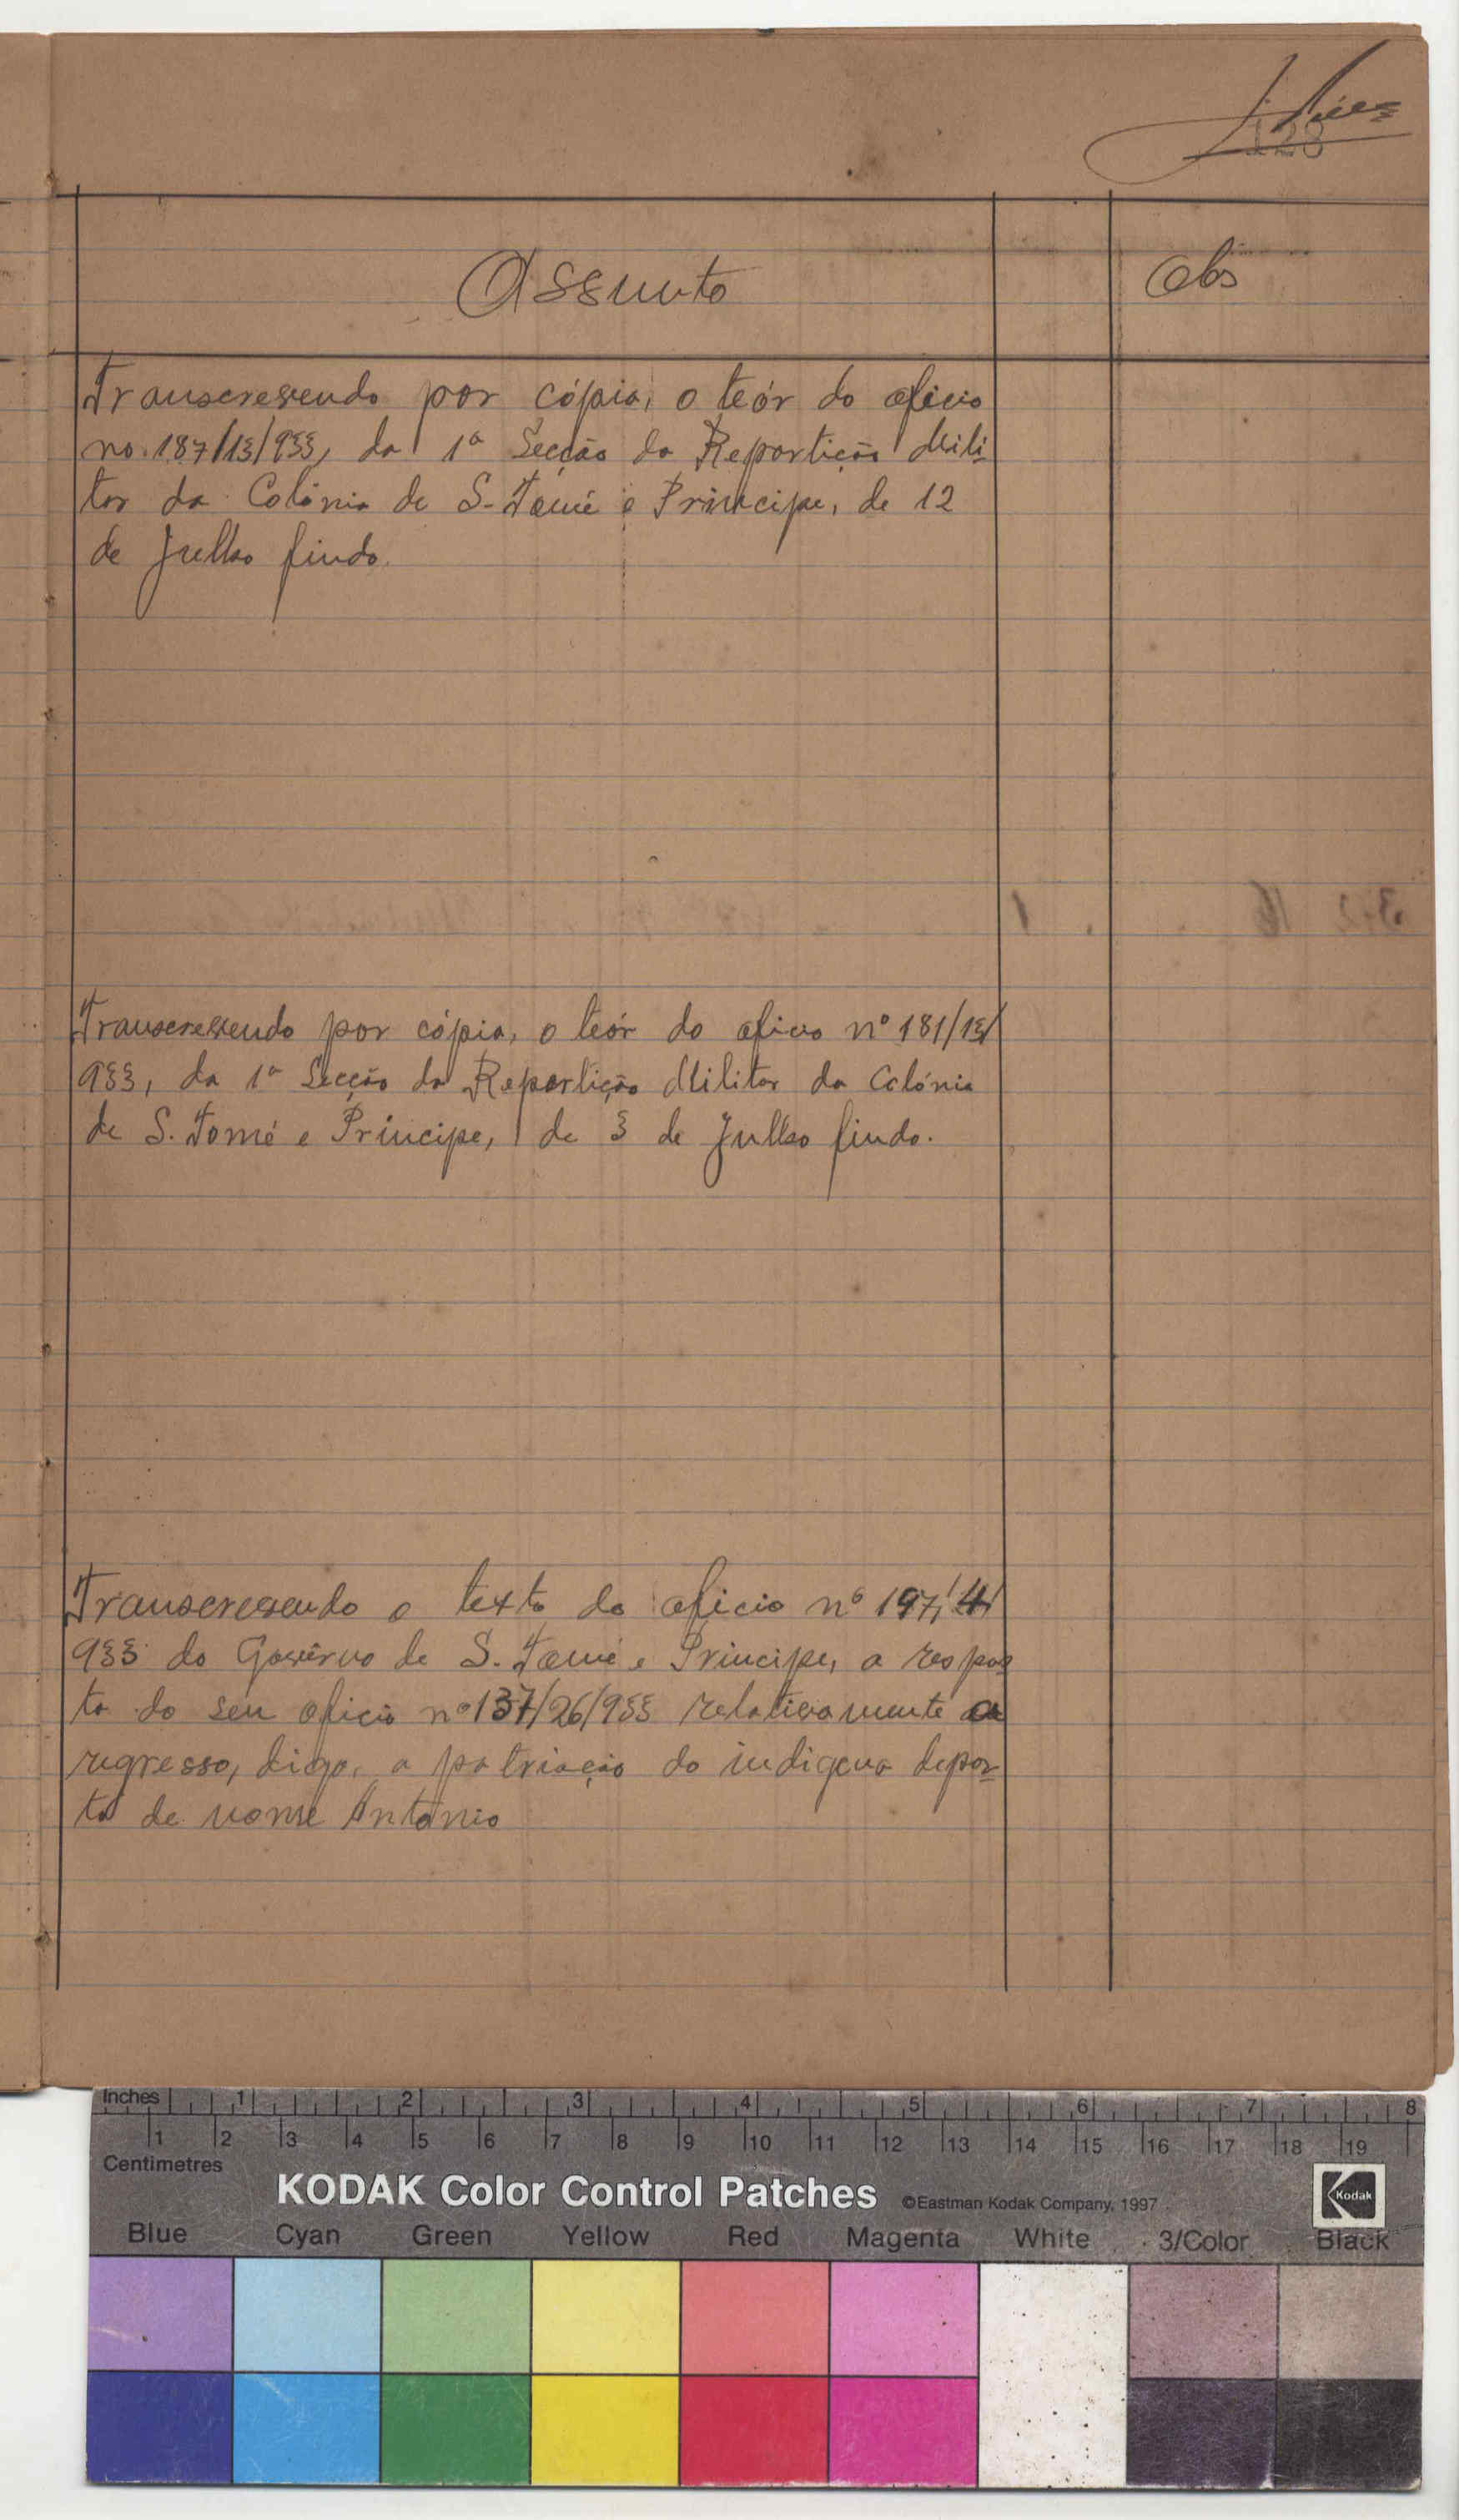 128
Assunto
Obs
Transcrevendo por cópia, o teór do oficio
no. 187/13/933, da 1ª Secção da Repartição Mili-
tar da Colónia de S. Tomé e Principe, de 12
de Julho findo.
Transcrevendo por cópia, o teór do oficio nº 181/13/
933, da 1ª Secção da Repartição Militar da Colónia
de S. Tomé e Principe, de 3 de Julho findo.
Transcrevendo o texto do oficio nº 197/4/
933 do Govêrno de S. Tomé e Principe, a respos
ta do seu oficio nº 137/26/933 relativamente a
regresso, digo, a patriação do indigena depor-
tado de nome António
Inches 1 2 3 4 5 6 7 8
1 2 3 4 5 6 7 8 9 10 11 12 13 14 15 16 17 18 19
Centimetres
KODAK Color Control Patches ©Eastman Kodak Company, 1997 Kodak
Blue Cyan Green Yellow Red Magenta White 3/Color Black